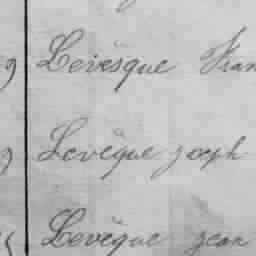 Levèsque Fran
Levêque joseph
Levêque jean